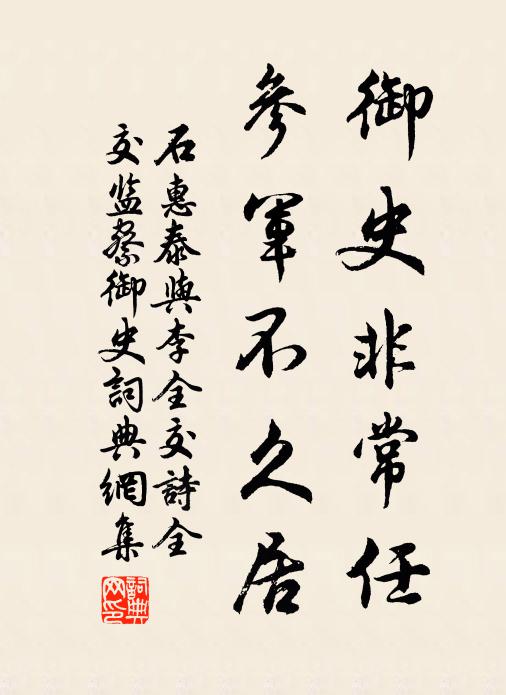 御史非常任
參軍不久居
石惠泰與李全交詩全
交监察御史詞典網集
詞典网印